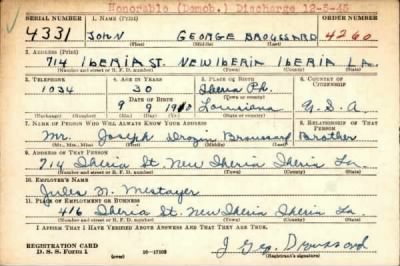 Honorable (Demob.) Discharge 12-5-45
SERIAL NUMBER 1. NAME (Print) ORDER NUMBER
4331 JOHN GEORGE BROUSSARD 4260
(First) (Middle) (Last)
2. ADDRESS (Print)
714 IBERIA ST. NEW IBERIA IBERIA LA.
(Number and street or R. F. D. number) (Town) (County) (State)
3. TELEPHONE 4. AGE IN YEARS 5. PLACE OF BIRTH 6. COUNTRY OF CITIZENSHIP
1034 30 Iberia Ph.
DATE OF BIRTH (Town or county)
9 9 1910 Louisiana U.S.A.
(Mo.) (Day) (Yr.) (State or country)
7. NAME OF PERSON WHO WILL ALWAYS KNOW YOUR ADDRESS 8. RELATIONSHIP OF THAT PERSON
Mr. Joseph Drozin Broussard Brother
(Mr., Mrs., Miss) (First) (Middle) (Last)
9. ADDRESS OF THAT PERSON
714 Iberia St. New Iberia Iberia La.
(Number and street or R. F. D. number) (Town) (County) (State)
10. EMPLOYER'S NAME
Jules M. Mestayer
11. PLACE OF EMPLOYMENT OR BUSINESS
416 Iberia St. New Iberia Iberia La.
(Number and street or R. F. D. number) (Town) (County) (State)
I AFFIRM THAT I HAVE VERIFIED ABOVE ANSWERS AND THAT THEY ARE TRUE.
REGISTRATION CARD
D. S. S. Form 1 16-17105
J Geo. Broussard
(Registrant's signature)